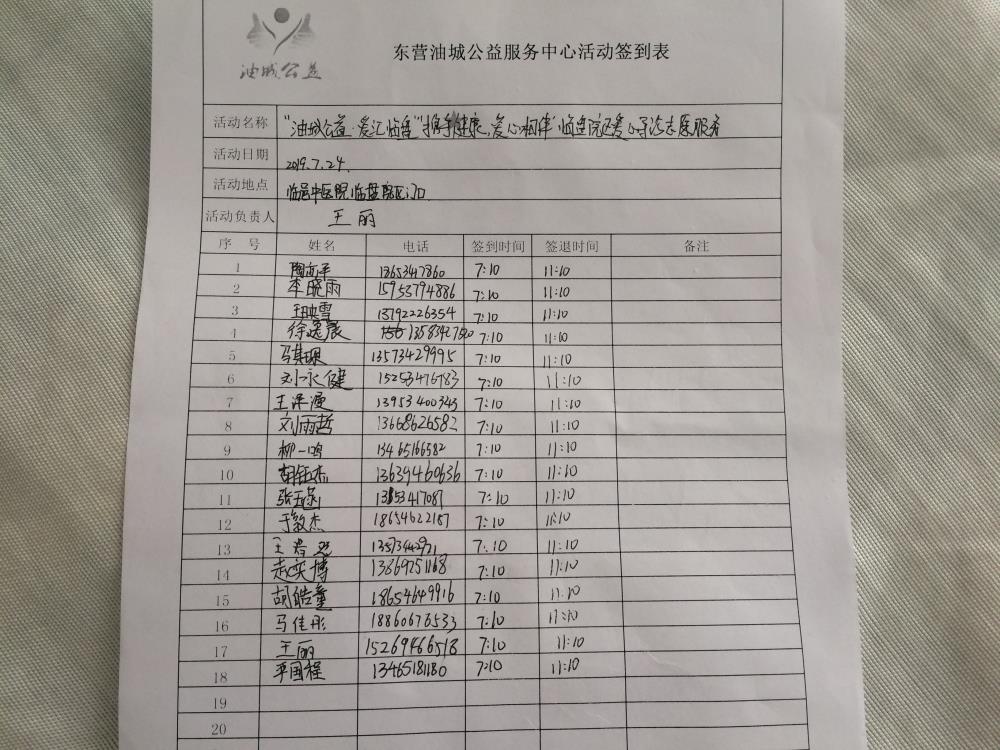 油城公益
东营油城公益服务中心活动签到表
活动名称 "油城公益·爱汇临盘"携手健康,爱心相伴 临盘院区爱心导诊志愿服务
活动日期 2019.7.24.
活动地点 临邑中医院临盘院区门口
活动负责人 王丽
序号 姓名 电话 签到时间 签退时间 备注
1 陶高平 13653447860 7:10 11:10
2 李晓雨 15953794886 7:10 11:10
3 王映雪 13792226354 7:10 11:10
4 徐逸宸 13583427520 7:10 11:10
5 马琪琛 13573429995 7:10 11:10
6 刘永健 15253476783 7:10 11:10
7 王泽漫 13953400343 7:10 11:10
8 刘雨哲 13668626582 7:10 11:10
9 柳一鸣 13465166582 7:10 11:10
10 胡钰杰 13639460636 7:10 11:10
11 张玉函 7:10 11:10
12 于毅杰 18654622157 7:10 11:10
13 王 7:10 11:10
14 赵奕博 13869751168 7:10 11:10
15 胡皓童 18654649916 7:10 11:10
16 马佳彤 18860676533 7:10 11:10
17 王丽 15269466518 7:10 11:10
18 平国程 13465181180 7:10 11:10
19
20